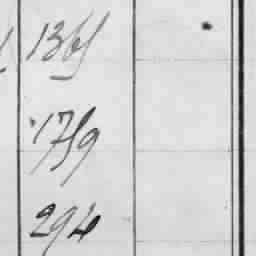 1365
1759
294